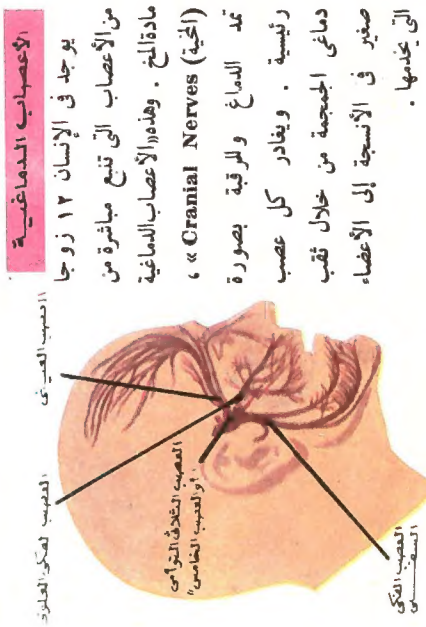 الأعصاب الدماغية
يوجد فى الإنسان ١٢ زوجا
من الأعصاب التى تنبع مباشرة من
مادة المخ . وهذه «الأعصاب الدماغية
(المخية) Cranial Nerves» ،
تمد الدماغ والرقبة بصورة
رئيسية . ويغادر كل عصب
دماغى الجمجمة من خلال ثقب
صغير فى الأنسجة إلى الأعضاء
التى يخدمها .
العصب العينى
العصب الفكى العلوى
العصب الثلاثى التوأمى
"أو العصب الخامس"
العصب الفكى
السفلى